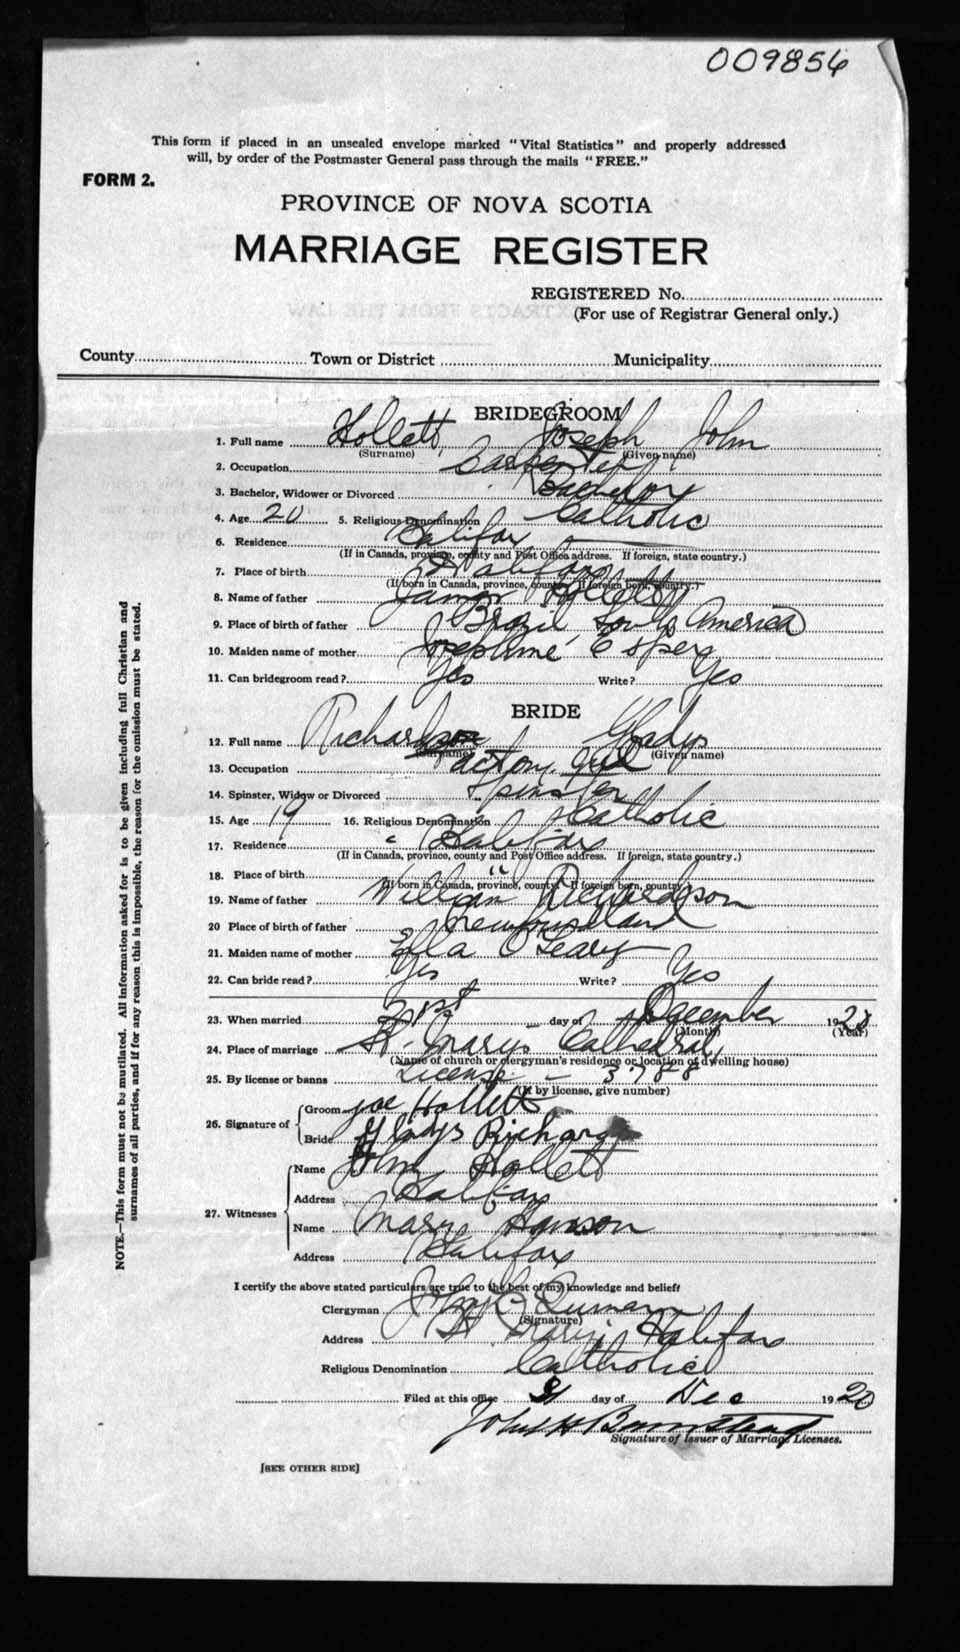 009856
This form if placed in an unsealed envelope marked "Vital Statistics" and properly addressed
will, by order of the Postmaster General pass through the mails "FREE."
FORM 2.
PROVINCE OF NOVA SCOTIA
MARRIAGE REGISTER
REGISTERED No.
(For use of Registrar General only.)
County Town or District Municipality
BRIDEGROOM
1. Full name Hollett, Joseph John
(Surname) (Given name)
2. Occupation Carpenter
3. Bachelor, Widower or Divorced Bachelor
4. Age 20 5. Religious Denomination Catholic
6. Residence Halifax
(If in Canada, province, county and Post Office address. If foreign, state country.)
7. Place of birth Halifax
(If born in Canada, province, county. If foreign born, country.)
8. Name of father James Hollett
9. Place of birth of father Brazil, South America
10. Maiden name of mother Josephine
11. Can bridegroom read? Yes Write? Yes
BRIDE
12. Full name Richardson Gladys
(Surname) (Given name)
13. Occupation Factory Girl
14. Spinster, Widow or Divorced Spinster
15. Age 19 16. Religious Denomination Catholic
17. Residence Halifax
(If in Canada, province, county and Post Office address. If foreign, state country.)
18. Place of birth "
(If born in Canada, province, county. If foreign born, country.)
19. Name of father William Richardson
20 Place of birth of father Newfoundland
21. Maiden name of mother Ella O'Leary
22. Can bride read? Yes Write? Yes
23. When married day of December 1920
(Month) (Year)
24. Place of marriage St. Marys Cathedral,
(Name of church or clergyman's residence or location of dwelling house)
25. By license or banns License - 3788
(If by license, give number)
26. Signature of Groom Joe Hollett
Bride Gladys
27. Witnesses Name John Hollett
Address Halifax
Name Mary Hanson
Address Halifax
I certify the above stated particulars are true to the best of my knowledge and belief
Clergyman John
(Signature)
Address St Marys Halifax
Religious Denomination Catholic
Filed at this office day of Dec 1920
John H Barnstead
Signature of Issuer of Marriage Licenses.
[SEE OTHER SIDE]
NOTE.—This form must not be mutilated. All information asked for is to be given including full Christian and
surnames of all parties, and if for any reason this is impossible, the reason for the omission must be stated.